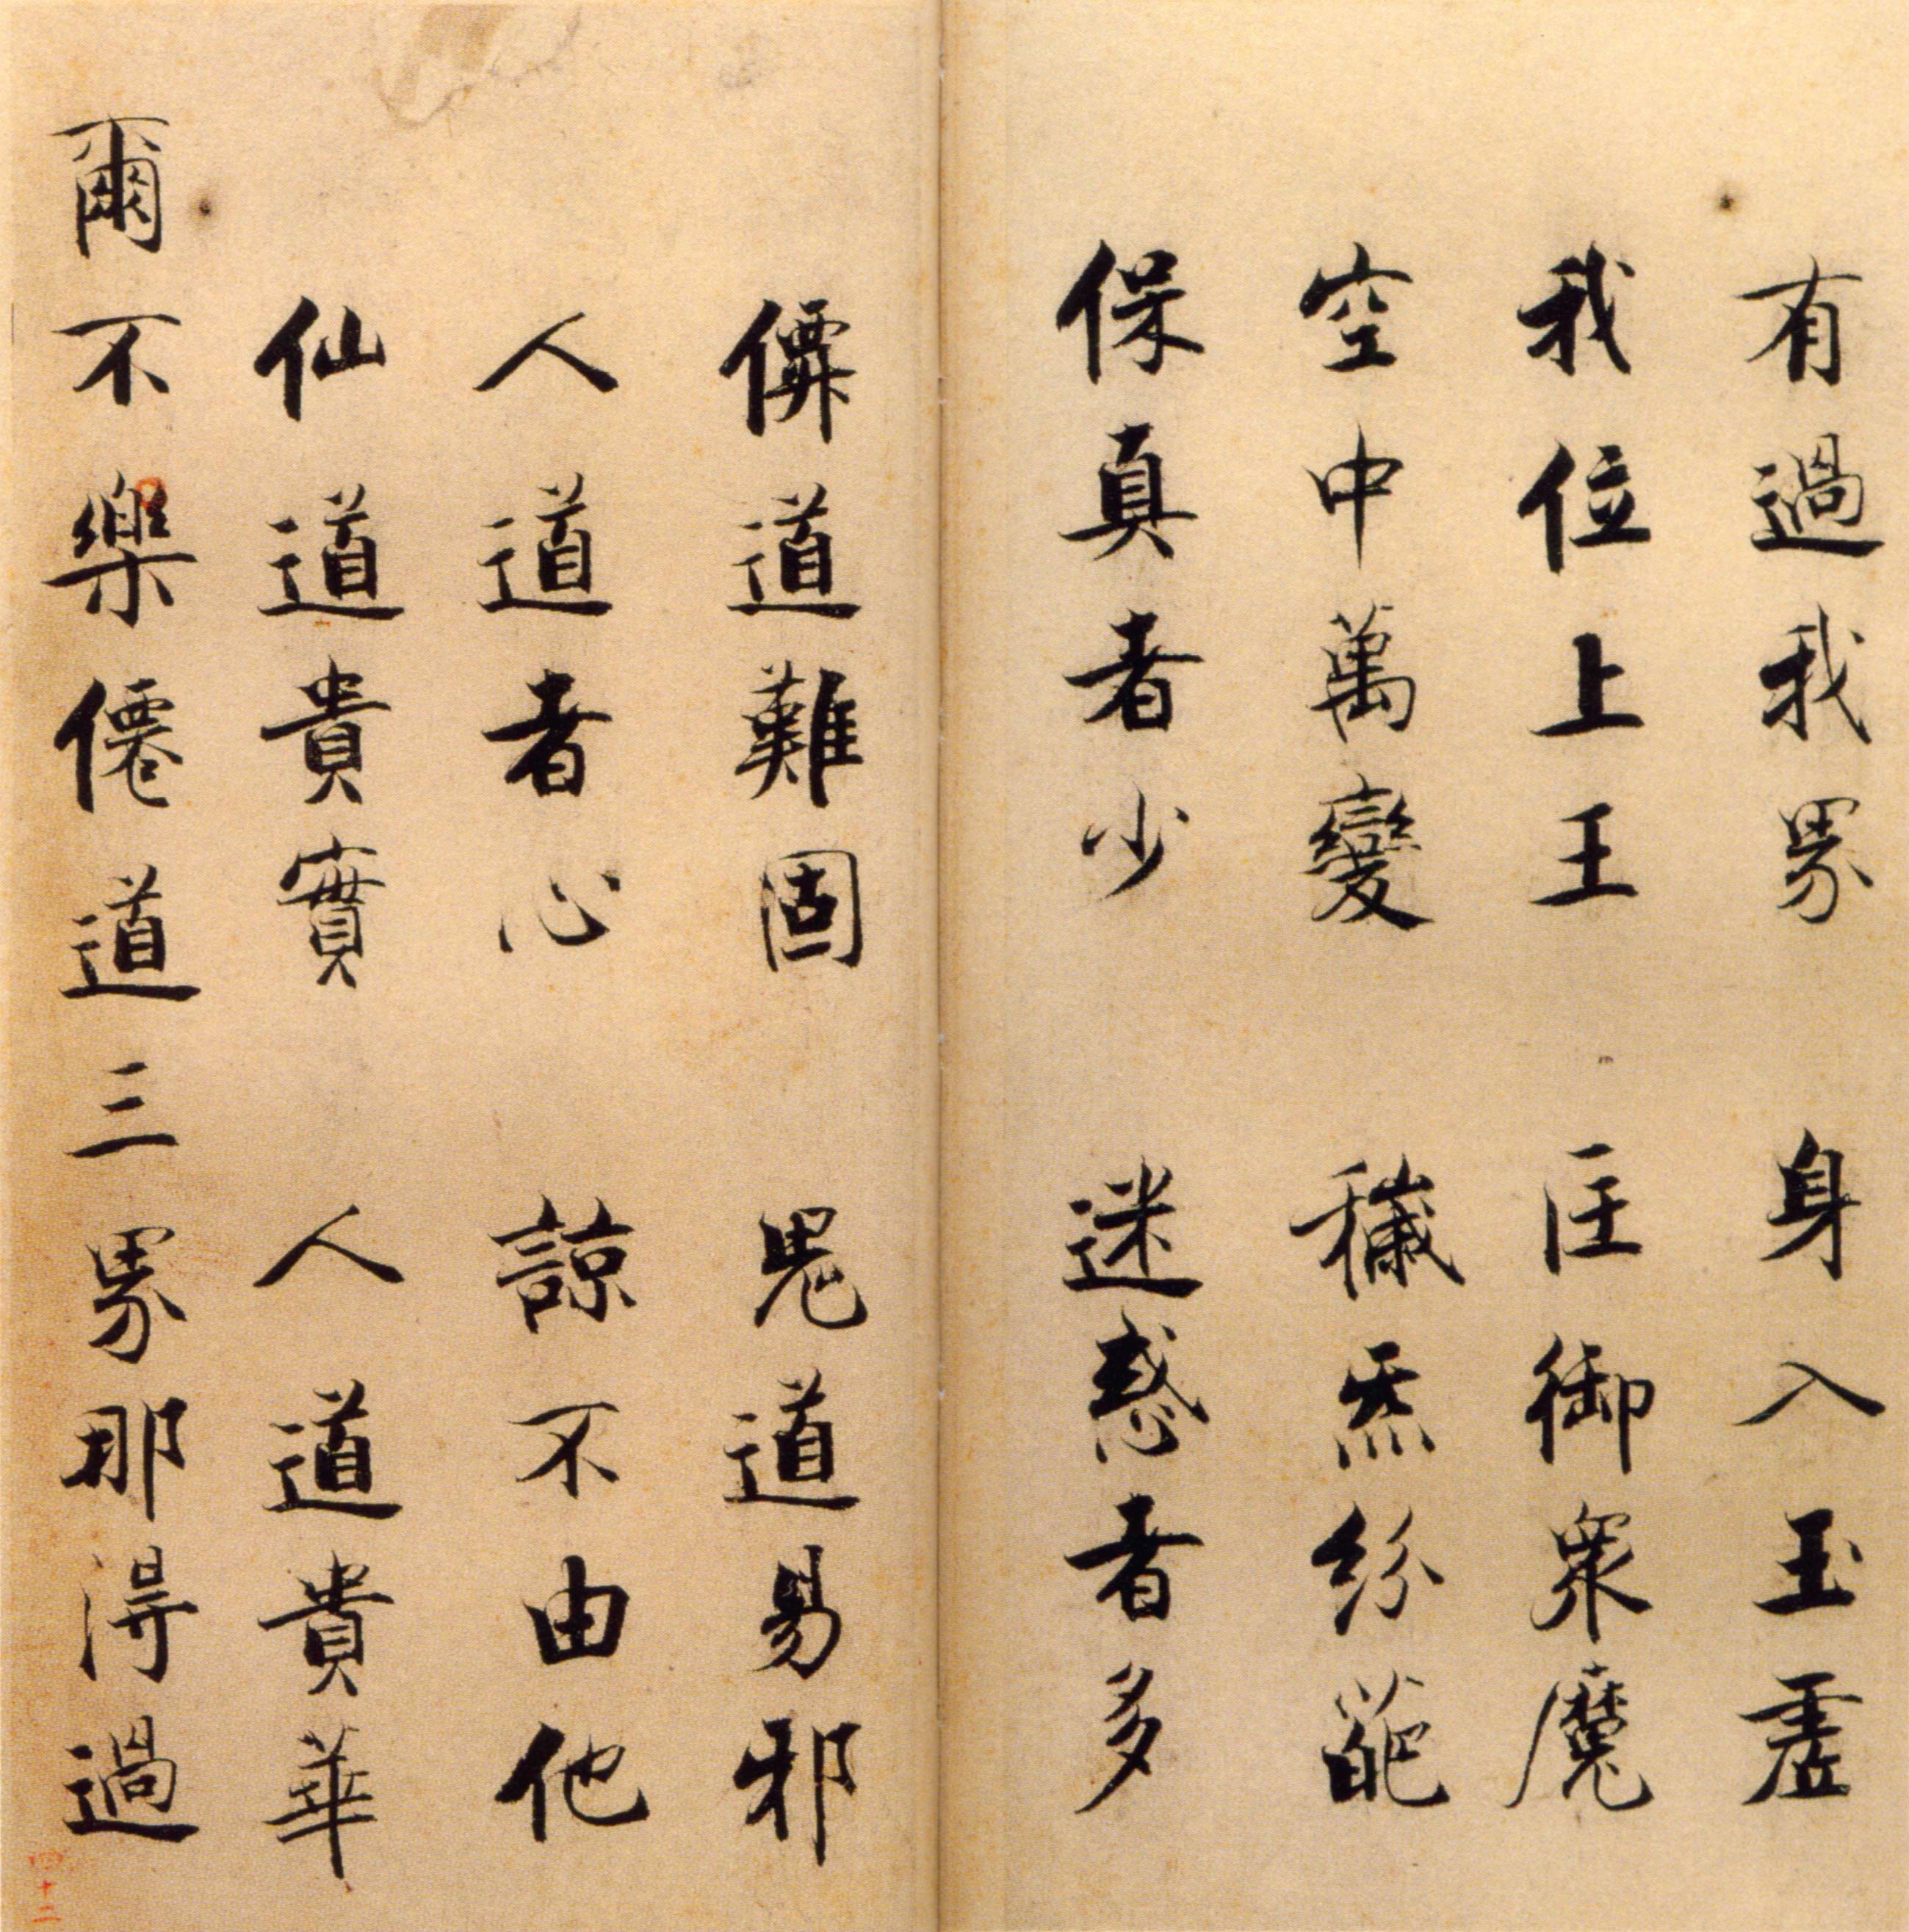 有過我界　身入玉虛
我位上王　匡御眾魔
空中萬變　穢炁紛葩
保真者少　迷惑者多
僊道難固　鬼道易邪
人道者心　諒不由他
仙道貴實　人道貴華
爾不樂僊道三界那得過
四十二